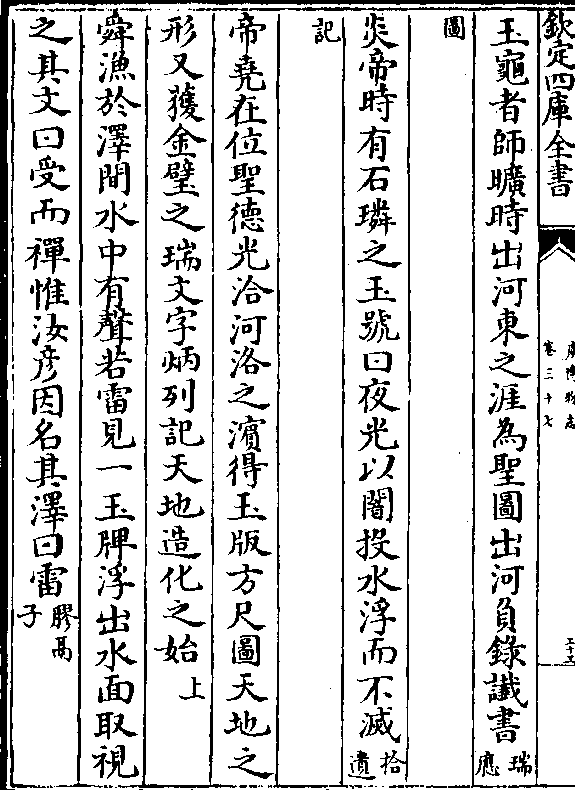 欽定四庫全書
廣博物志
卷三十七
玉龜者師曠時出河東之涯為聖圖出河負錄讖書瑞應
圖
炎帝時有石璘之玉號曰夜光以闇投水浮而不滅拾遺
記
帝堯在位聖德光洽河洛之濱得玉版方尺圖天地之
形又獲金璧之瑞文字炳列記天地造化之始上
舜漁於澤間水中有聲若雷見一玉牌浮出水面取視
之其文曰受而禪惟汝彥因名其澤曰雷膠鬲子